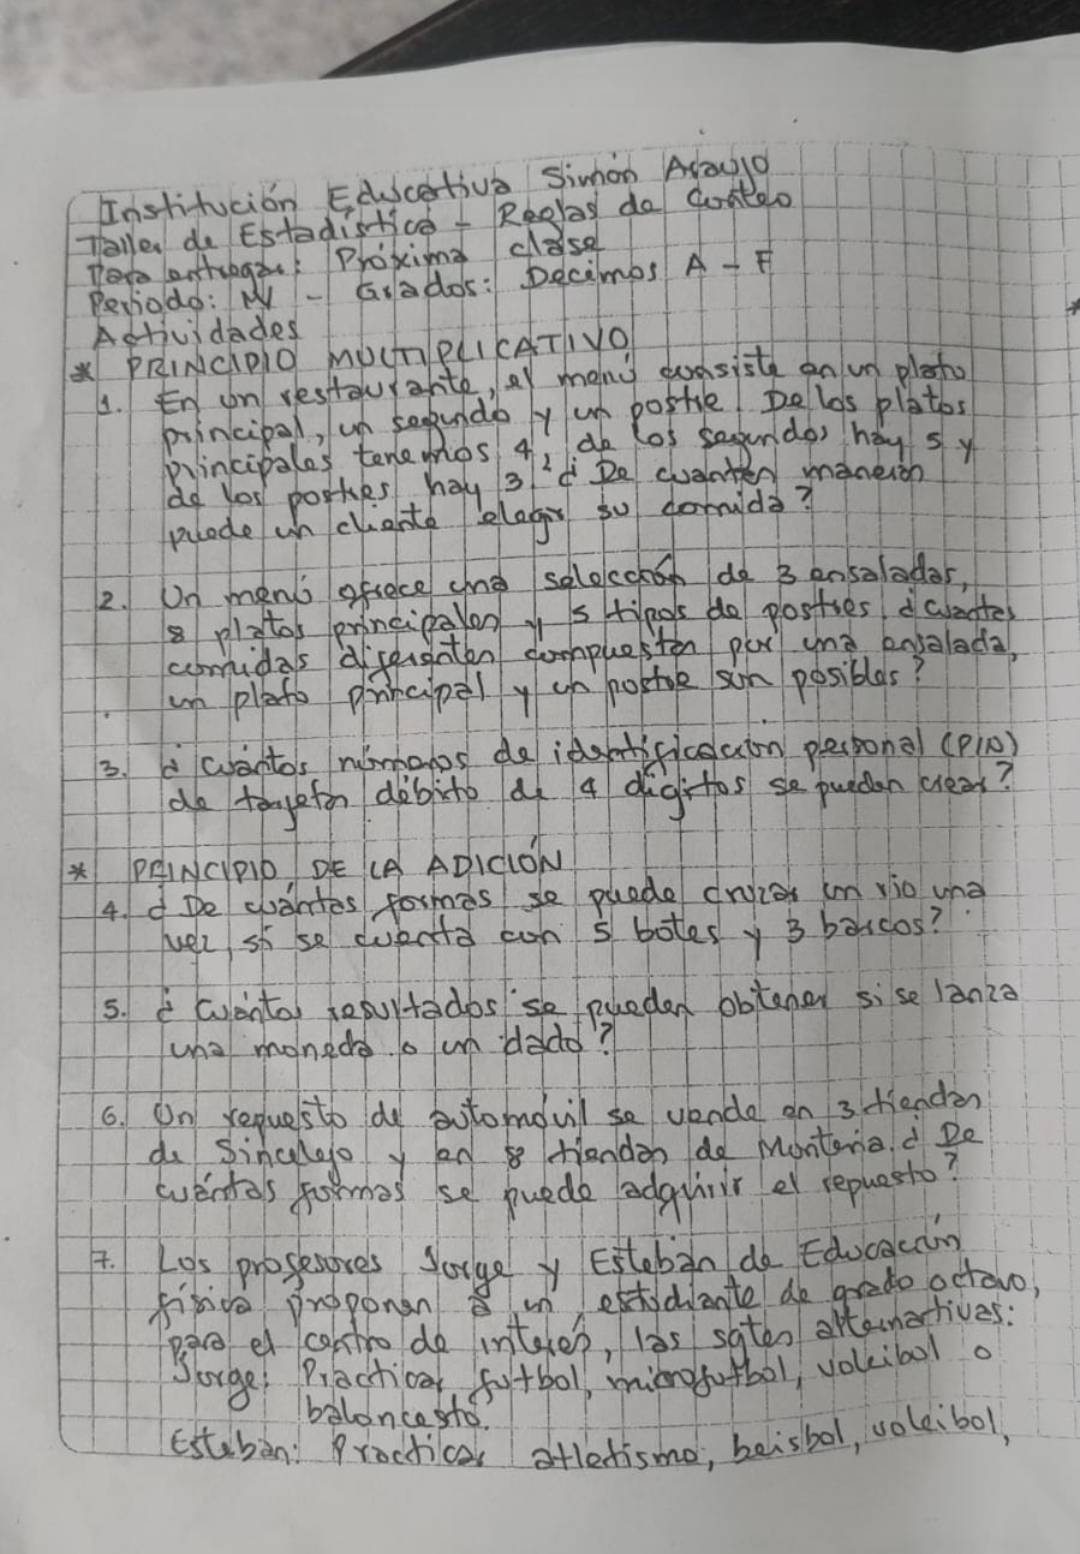 Institución Educativa Simón Araujo
Taller de Estadística - Reglas de Conteo
Para entregar: Próxima clase
Periodo: IV - Grados: Decimos A - F
Actividades
* PRINCIPIO MULTIPLICATIVO
1. En un restaurante, el menú consiste en un plato
principal, un segundo y un postre. De los platos
principales tenemos 4, de los segundos hay 5 y
de los postres hay 3. ¿De cuantas maneras
puede un cliente elegir su comida?
2. Un menú ofrece una selección de 3 ensaladas,
8 platos principales y 5 tipos de postres, ¿cuantas
comidas diferentes compuestas por una ensalada,
un plato principal y un postre son posibles?
3. ¿Cuántos números de identificación personal (PIN)
de tarjetas débito de 4 dígitos se pueden crear?
* PRINCIPIO DE LA ADICIÓN
4. ¿De cuántas formas se puede cruzar un rio una
vez, si se cuenta con 5 botes y 3 barcos?
5. ¿Cuántos resultados se pueden obtener si se lanza
una moneda o un dado?
6. Un repuesto de automóvil se vende en 3 tiendas
de Sincelejo y en 8 tiendas de Montería. ¿De
cuántas formas se puede adquirir el repuesto?
7. Los profesores Jorge y Esteban de Educación
física proponen a un estudiante de grado octavo,
para el centro de interés, las sgtes alternartivas:
Jorge: Practicar futbol, microfutbol, voleibol o
baloncesto.
Esteban: Practicar atletismo, beisbol, voleibol,